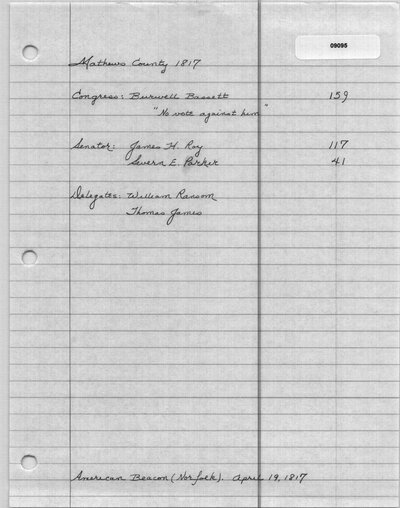 09095
Mathews County 1817
Congress: Burwell Bassett 159
"No vote against him"
Senator: James H. Roy 117
Severn E. Parker 41
Delegates: William Ransom
Thomas James
American Beacon (Norfolk). April 19, 1817